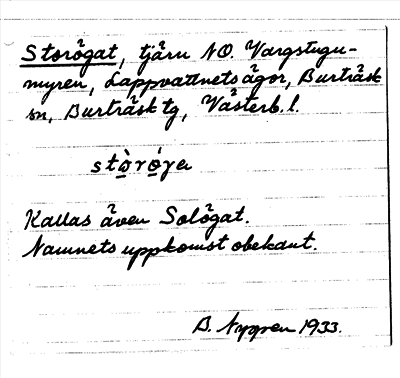 Storögat, tjärn NO. Vargstugu-
myren, Lappvattnets ägor, Burträsk
sn, Burträsk tg, Västerb. l.
stò̱ró̱ɣa
Kallas även Solögat.
Namnets uppkomst obekant.
B. Nygren 1933.